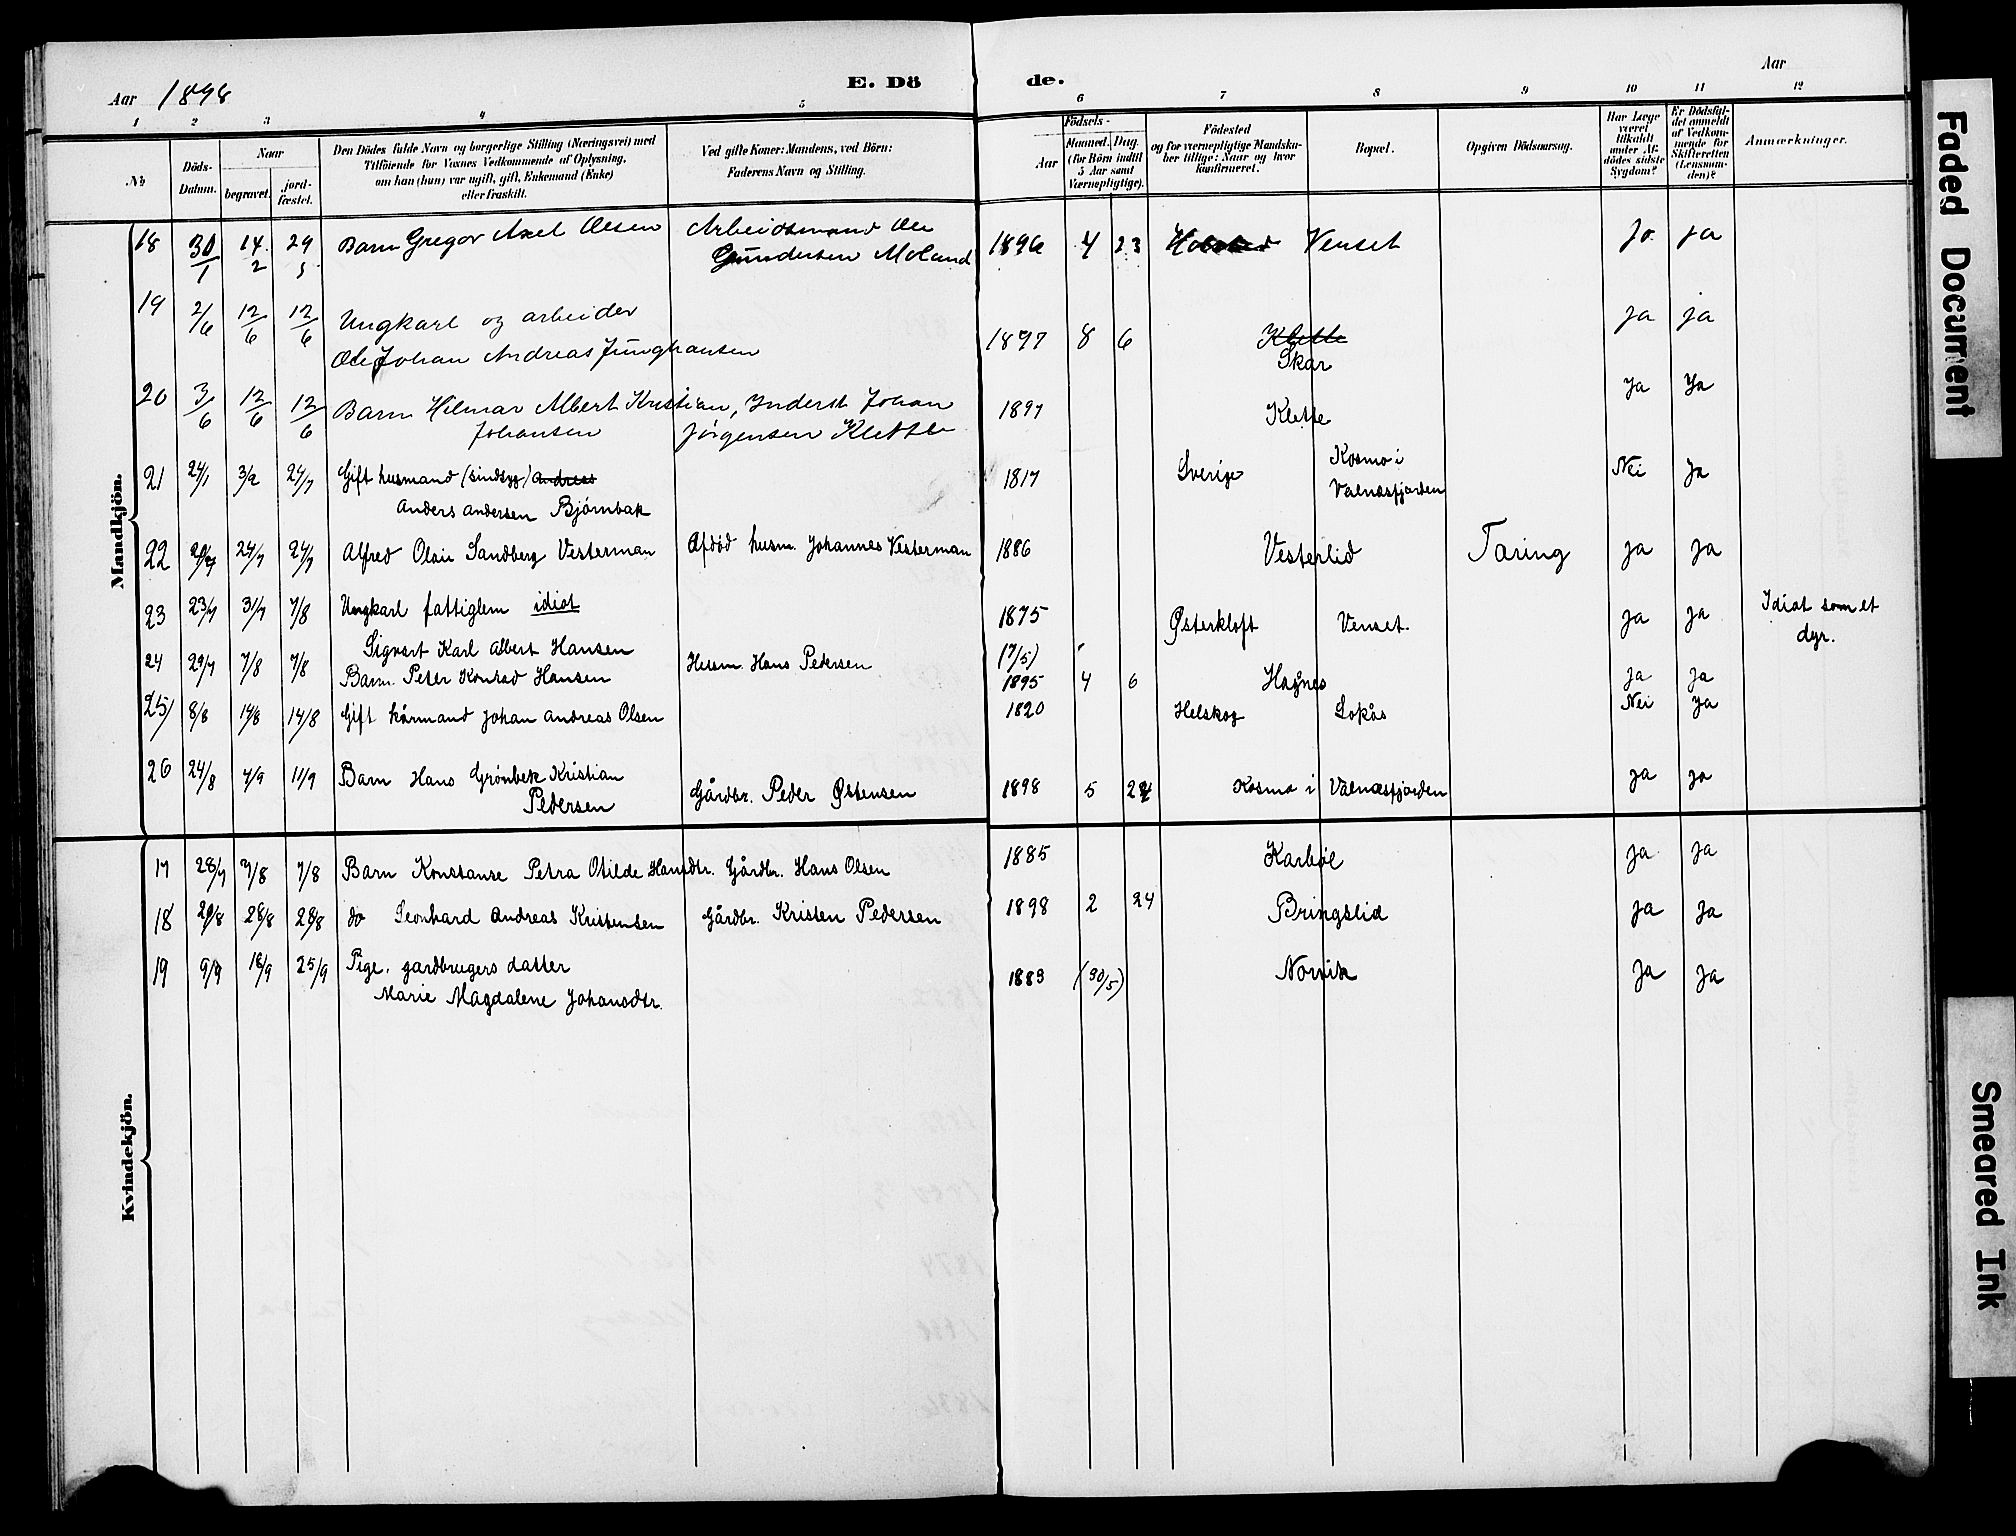 Aar 1898
E. Dö de.
Aar
1 2 3 4 5 6 7 8 9 10 11 12
No
Döds-Datum.
Naar
begravet.
jord-fæstet.
Den Dödes fulde Navn og borgerlige Stilling (Næringsvei) med
Tilföiende for Voxnes Vedkommende af Oplysning,
om han (hun) var ugift, gift, Enkemand (Enke)
eller fraskilt.
Ved gifte Koner: Mandens, ved Börn:
Faderens Navn og Stilling.
Födsels-
Aar
Maaned. Dag.
(for Börn indtil
5 Aar samt
Værnepligtige).
Födested
og for værnepligtige Mandska-
ber tillige: Naar og hvor
konfirmeret.
Bopæl.
Opgiven Dödsaarsag.
Har Læge
været
tilkaldt
under Af-
dödes sidste
Sygdom?
Er Dödsfal-
det anmeldt
af Vedkom-
mende for
Skifteretten
(Lensman-
den)?
Anmærkninger.
Mandkjön.
18 30/1 14/2 29/5 Barn Gregor Axel Olsen Arbeidsmand Ole 1896 4 23 Venset Ja ja
Gundersen Moland
19 2/6 12/6 12/6 Ungkarl og arbeider 1897 8 6 Klette ja ja
Ole Johan Andreas Junghansen Skar
20 3/6 12/6 12/6 Barn Hilmar Albert Kristian, Inderst Johan 1897 Klette Ja Ja
Johansen Jørgensen Klette
21 24/1 3/2 24/7 Gift husmand (sindsyg) Andreas 1817 Sverige Kosmo i Nei Ja
Anders Andersen Bjørnbak Valnæsfjorden
22 24/7 24/7 Alfred Olai Sandberg Vesterman Afdød husm. Johannes Vesterman 1886 Vesterlid Tæring ja ja
23 23/7 31/7 7/8 Ungkarl fattiglem idiot 1875 Østerkløft Venset. ja ja Idiot som et
Sigvart Karl Albert Hansen (17/5) dyr.
24 29/7 7/8 7/8 Barn. Peter Konrad Hansen Husm. Hans Pedersen 1895 4 6 Hagnes ja ja
25 8/8 14/8 14/8 Gift kårmand Johan Andreas Olsen 1820 Helskog Løkås Nei ja
26 24/8 4/9 11/9 Barn Hans Grønbek Kristian Gårdbr. Peder Østensen 1898 5 Kosmo i Valnæsfjorden ja ja
Pedersen
Kvindekjön.
17 28/7 7/8 7/8 Barn Konstanse Petra Otilde Hansdtr. Gårdbr. Hans Olsen 1885 Karbøl ja ja
18 20/8 28/8 28/8 do Leonhard Andreas Kristensen Gårdbr. Kristen Pedersen 1898 2 24 Bringslid ja ja
19 9/9 18/9 25/9 Pige. gardbrugers datter 1883 (30/5) Norvik ja ja
Marie Magdalene Johansdtr.
Faded Document
Smeared Ink